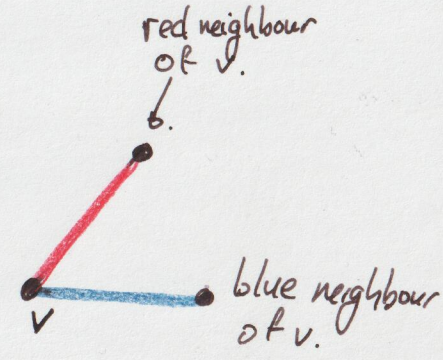 red neighbour
of v.
v
blue neighbour
of v.